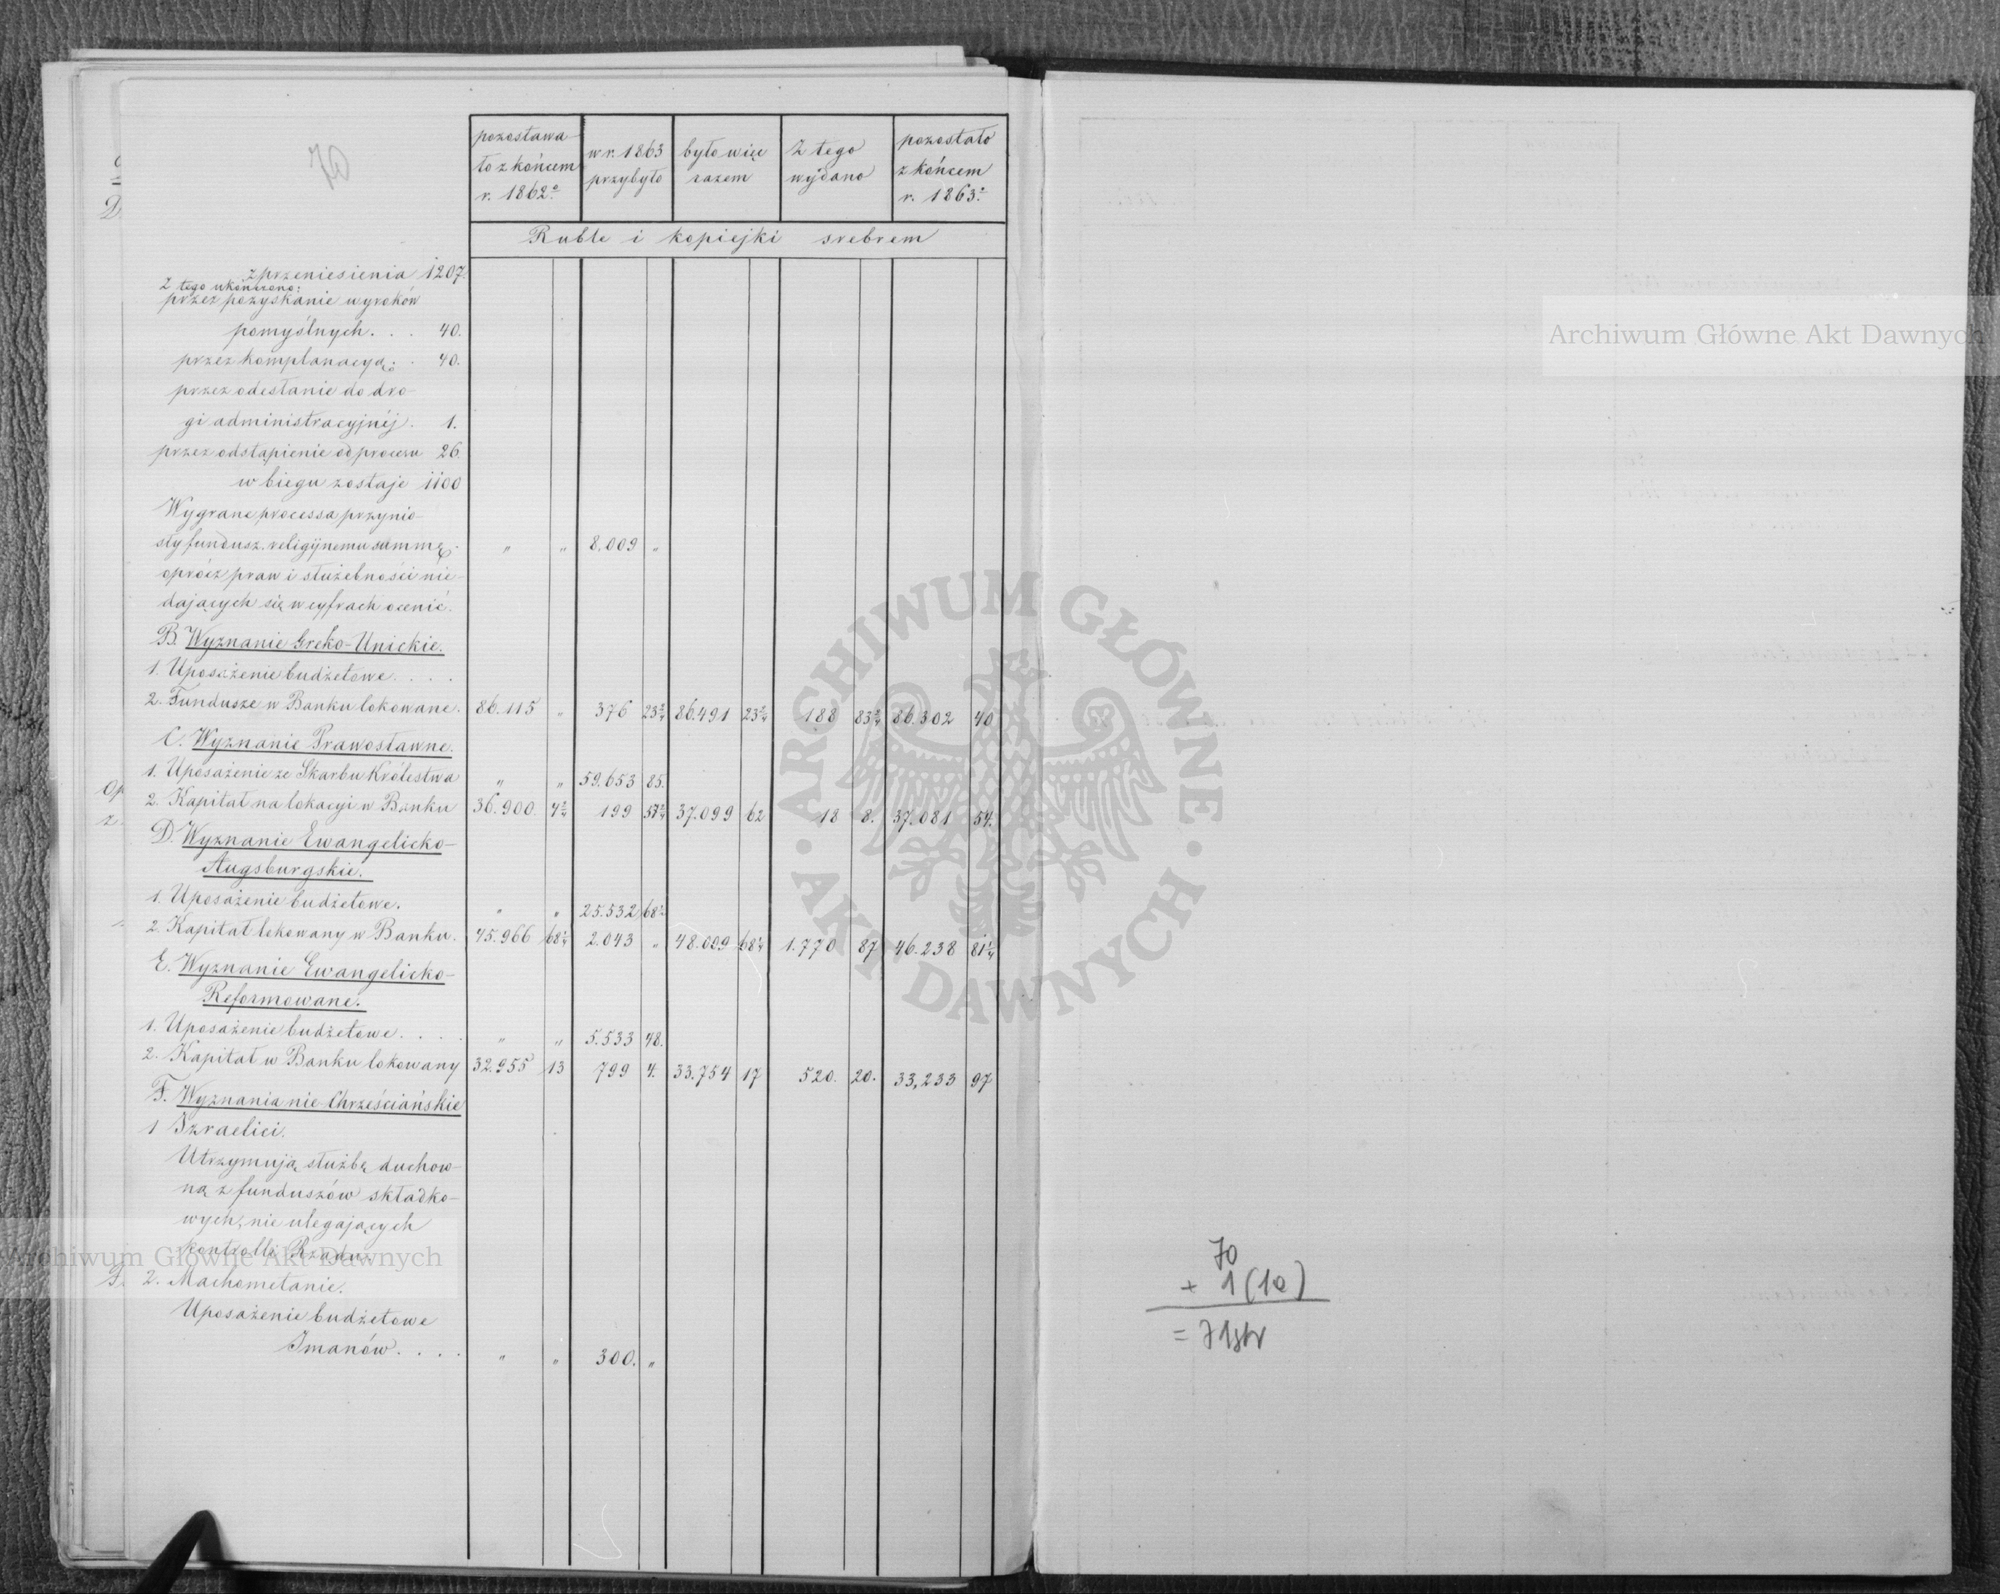 70
pozostawa-
ło z końcem
r. 1862º
w r. 1863
przybyło
było więc
razem
Z tego
wydano
pozostało
z końcem
r. 1863º
Ruble i kopiejki srebrem
z przeniesienia 1207.
Z tego ukończono:
przez pozyskanie wyroków
pomyślnych . . . 40.
przez komplanacyą . . 40.
przez odesłanie do dro-
gi administracyjnéj . 1.
przez odstąpienie od procesu 26.
w biegu zostaje 1100
Wygrane processa przynio-
sły fundusz. religijnemu summę . " " 8.009 "
oprócz praw i służebności nie-
dających się w cyfrach ocenić.
B. Wyznanie Greko-Unickie.
1. Uposażenie budżetowe . . . .
2. Fundusze w Banku lokowane. 86.115 " 376 23 2/4 86.491 23 2/4 188 83 2/4 86.302 40
C. Wyznanie Prawosławne.
1. Uposażenie ze Skarbu Królestwa " " 59.653 85.
2. Kapitał na lokacyi w Banku 36.900 4 2/4 199 57 2/4 37.099 62 18 8. 37.081 54.
D. Wyznanie Ewangelicko-
Augsburgskie.
1. Uposażenie budżetowe. " " 25.532 68 1/2
2. Kapitał lokowany w Banku. 45.966 68 1/4 2.043 " 48.009 68 1/4 1.770 87 46.238 81 1/4
E. Wyznanie Ewangelicko-
Reformowane.
1. Uposażenie budżetowe . . . . " " 5.533 48.
2. Kapitał w Banku lokowany 32.955 13 799 4. 33.754 17 520. 20. 33,233 97
F. Wyznania nie Chrześciańskie
1 Izraelici.
Utrzymują służbę duchow-
ną z funduszów składko-
wych, nie ulegających
kontrolli Rządu.
2. Machometanie.
Uposażenie budżetowe
Imanów . . . . " " 300. "
Archiwum Główne Akt Dawnych
Archiwum Główne Akt Dawnych
ARCHIWUM GŁÓWNE
AKT DAWNYCH
70
+ 1 (1a)
= 71 str